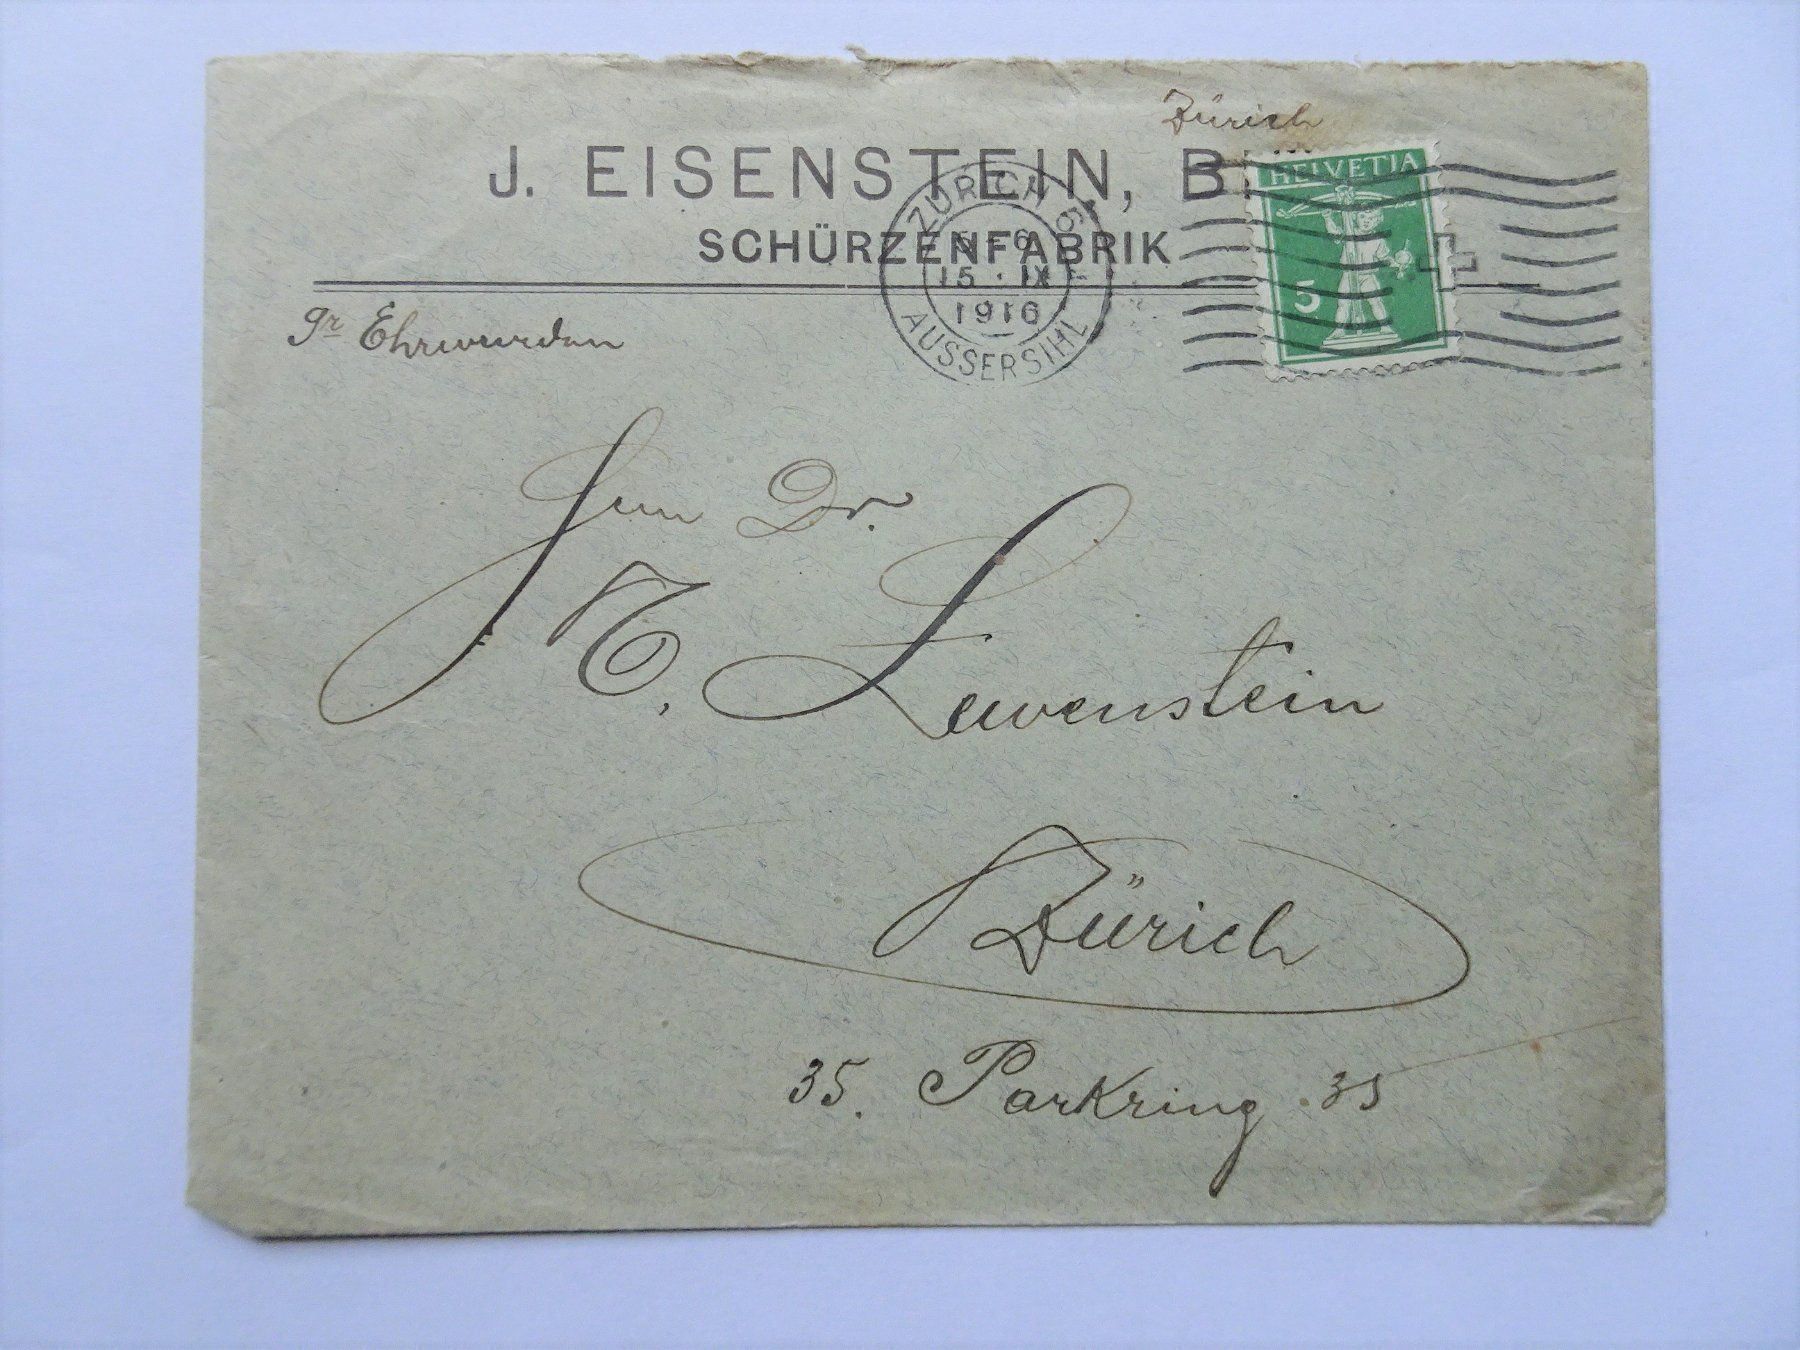 Zürich
J. EISENSTEIN, B
HELVETIA
5
SCHÜRZENFABRIK
ZÜRICH 6
5-6
15·IX
1916
AUSSERSIHL
gr Ehrwurden
Herrn Dr.
T. Lewenstein
Zürich
35. Parkring 35